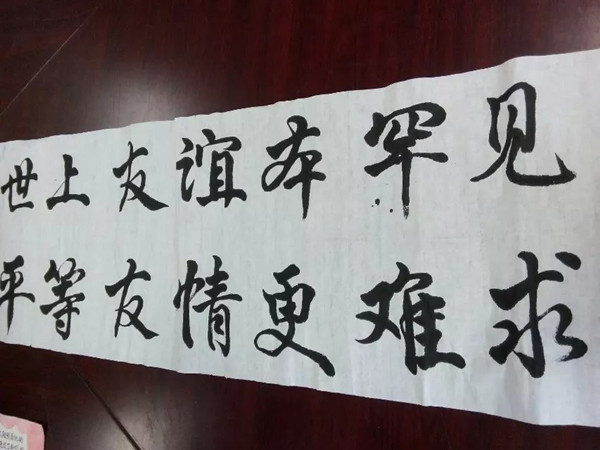 世上友谊本罕见
平等友情更难求